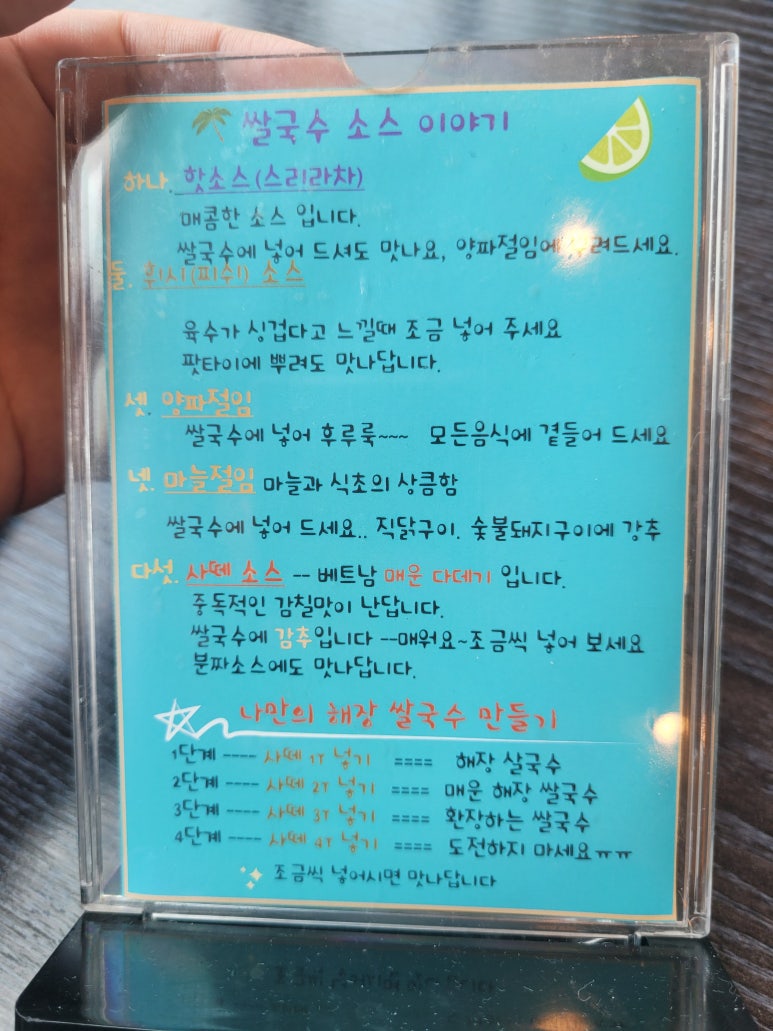 쌀국수 소스 이야기
하나. 핫소스(스리라차)
매콤한 소스 입니다.
쌀국수에 넣어 드셔도 맛나요, 양파절임에 려드세요.
둘. 휘시(피쉬) 소스
육수가 싱겁다고 느낄때 조금 넣어 주세요
팟타이에 뿌려도 맛나답니다.
셋. 양파절임
쌀국수에 넣어 후루룩~~~ 모든음식에 곁들어 드세요
넷. 마늘절임 마늘과 식초의 상큼함
쌀국수에 넣어 드세요.. 직닭구이. 숯불돼지구이에 강추
다섯. 사떼 소스 -- 베트남 매운 다데기 입니다.
중독적인 감칠맛이 난답니다.
쌀국수에 감추입니다 --매워요~조금씩 넣어 보세요
분짜소스에도 맛나답니다.
나만의 해장 쌀국수 만들기
1단계 ---- 사떼 1T 넣기 ==== 해장 살국수
2단계 ---- 사떼 2T 넣기 ==== 매운 해장 쌀국수
3단계 ---- 사떼 3T 넣기 ==== 환장하는 쌀국수
4단계 ---- 사떼 4T 넣기 ==== 도전하지 마세요ㅠㅠ
조금씩 넣어시면 맛나답니다